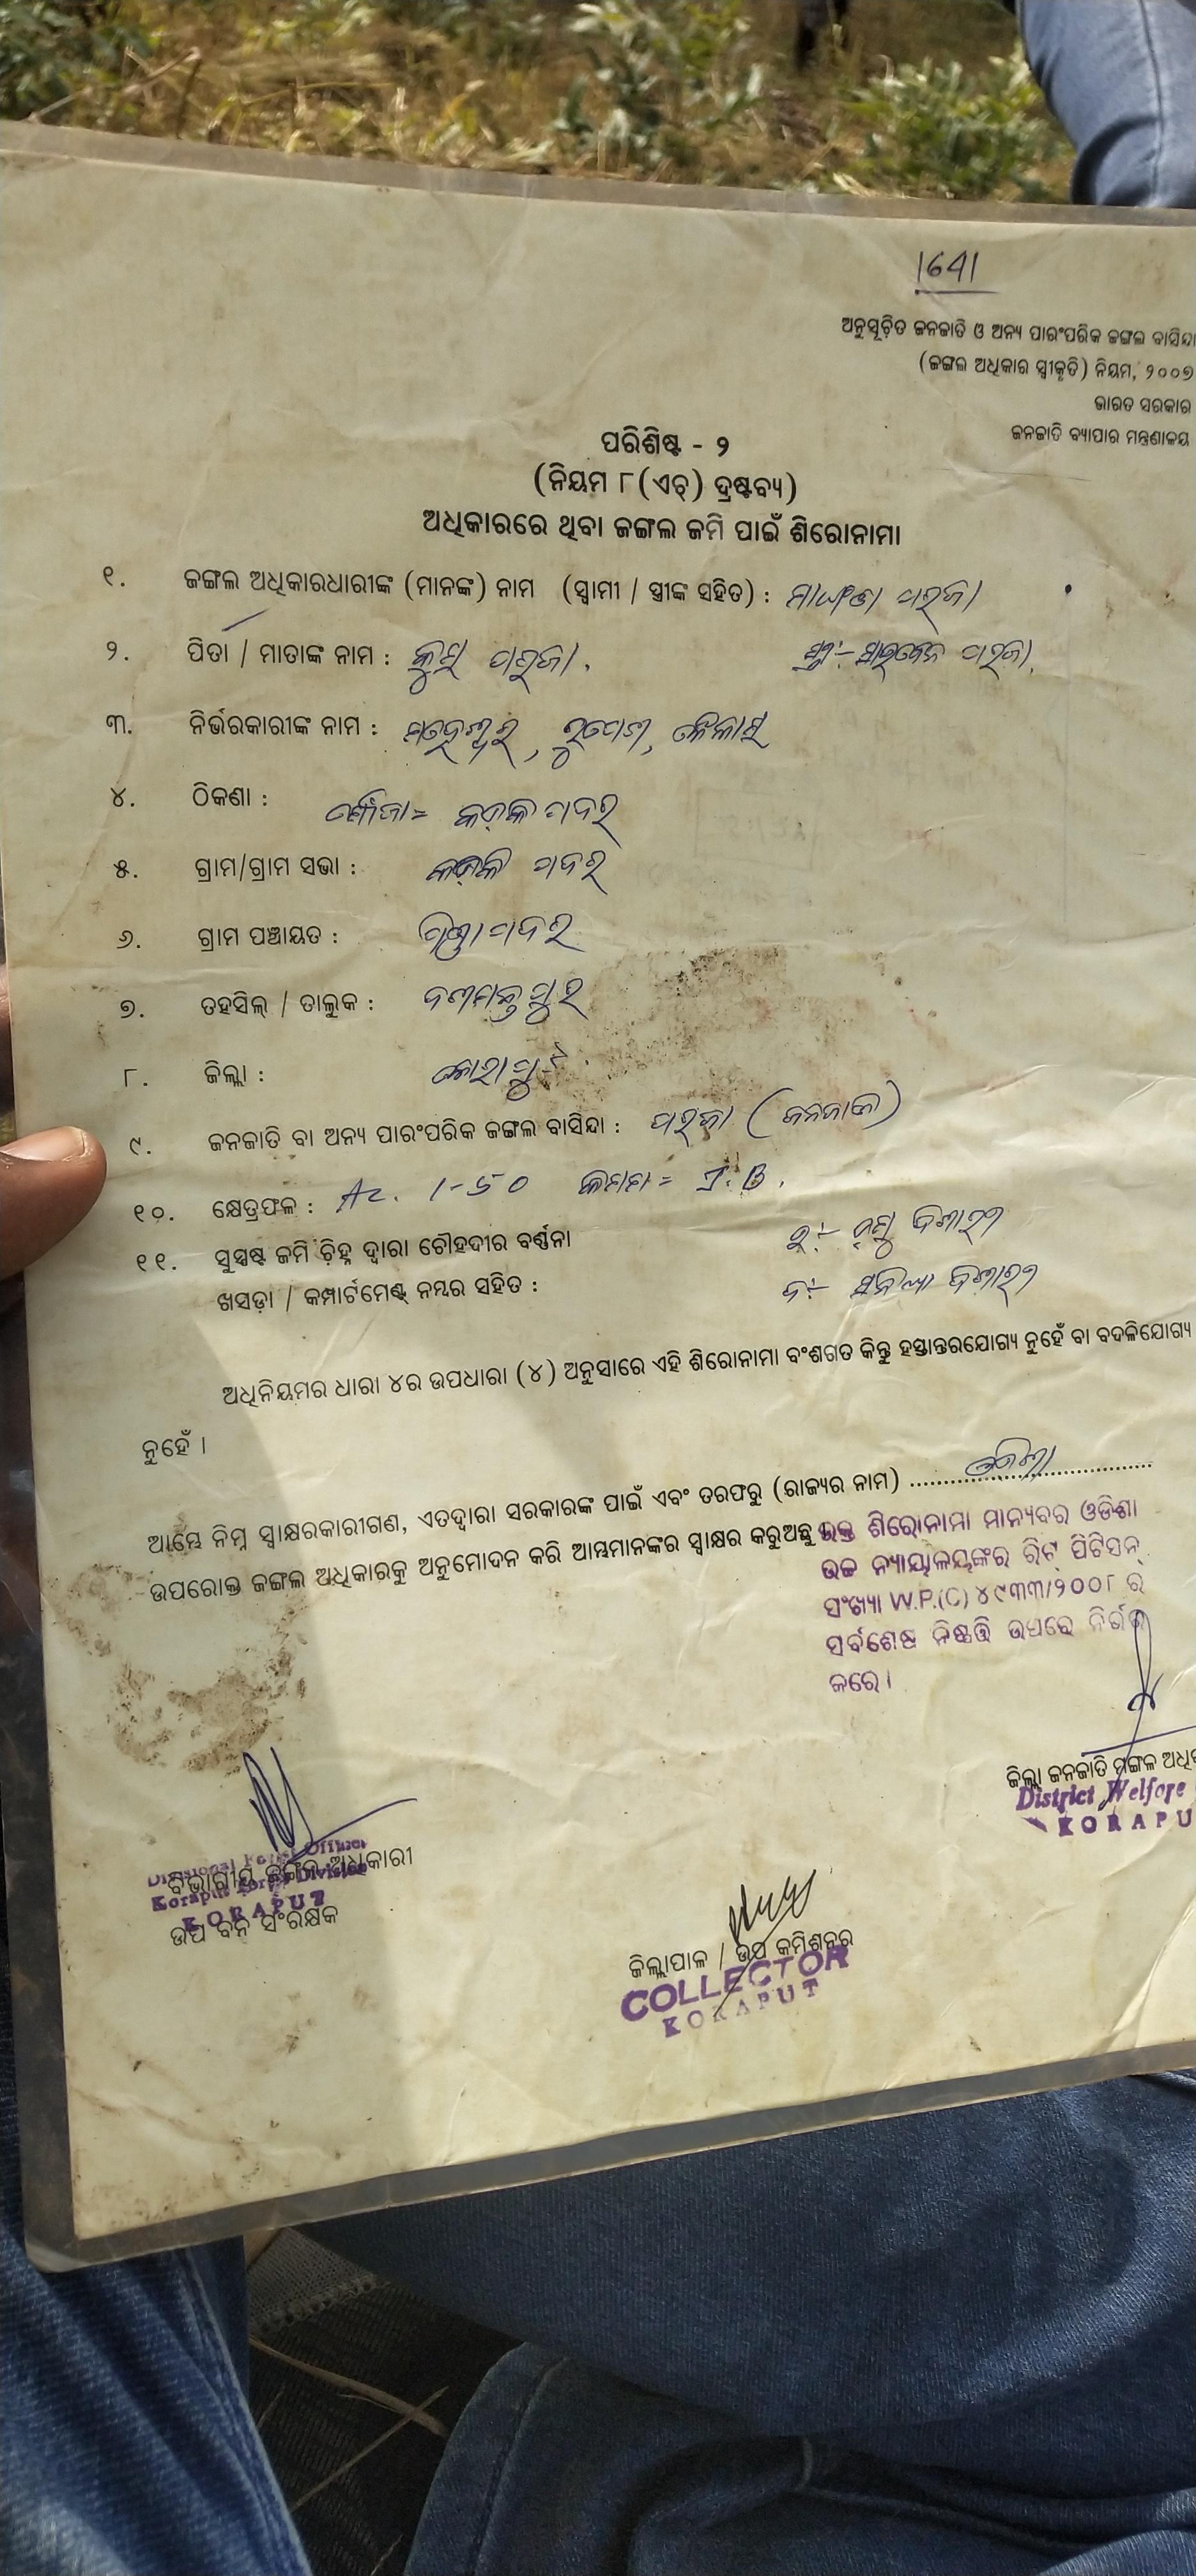 1641
ଅନୁସୂଚିତ ଜନଜାତି ଓ ଅନ୍ୟ ପାରଂପରିକ ଜଙ୍ଗଲ ବାସିନ୍ଦା
(ଜଙ୍ଗଲ ଅଧିକାର ସ୍ୱୀକୃତି) ନିୟମ, ୨୦୦୭
ଭାରତ ସରକାର
ଜନଜାତି ବ୍ୟାପାର ମନ୍ତ୍ରଣାଳୟ
ପରିଶିଷ୍ଟ - ୨
(ନିୟମ ୮(ଏଚ୍) ଦ୍ରଷ୍ଟବ୍ୟ)
ଅଧିକାରରେ ଥିବା ଜଙ୍ଗଲ ଜମି ପାଇଁ ଶିରୋନାମା
୧. ଜଙ୍ଗଲ ଅଧିକାରଧାରୀଙ୍କ (ମାନଙ୍କ) ନାମ (ସ୍ୱାମୀ / ସ୍ତ୍ରୀଙ୍କ ସହିତ) : ପରଜା
୨. ପିତା / ମାତାଙ୍କ ନାମ : ପରଜା ପରଜା
୩. ନିର୍ଭରକାରୀଙ୍କ ନାମ : ମହେଶ୍ୱର,
୪. ଠିକଣା : ମୌଜା= ପଦର
୫. ଗ୍ରାମ/ଗ୍ରାମ ସଭା : ପଦର
୬. ଗ୍ରାମ ପଞ୍ଚାୟତ :
୭. ତହସିଲ୍ / ତାଲୁକ : ଦଶମନ୍ତପୁର
୮. ଜିଲ୍ଲା : କୋରାପୁଟ
୯. ଜନଜାତି ବା ଅନ୍ୟ ପାରଂପରିକ ଜଙ୍ଗଲ ବାସିନ୍ଦା : ପରଜା (ଜନଜାତି)
୧୦. କ୍ଷେତ୍ରଫଳ : Ac. 1-50
୧୧. ସୁସ୍ପଷ୍ଟ ଜମି ଚିହ୍ନ ଦ୍ୱାରା ଚୌହଦୀର ବର୍ଣ୍ଣନା
ଖସଡ଼ା / କମ୍ପାର୍ଟମେଣ୍ଟ୍ ନମ୍ବର ସହିତ :
ଅଧିନିୟମର ଧାରା ୪ର ଉପଧାରା (୪) ଅନୁସାରେ ଏହି ଶିରୋନାମା ବଂଶଗତ କିନ୍ତୁ ହସ୍ତାନ୍ତରଯୋଗ୍ୟ ନୁହେଁ ବା ବଦଳିଯୋଗ୍ୟ
ନୁହେଁ ।
ଆମ୍ଭେ ନିମ୍ନ ସ୍ୱାକ୍ଷରକାରୀଗଣ, ଏତଦ୍ଦ୍ୱାରା ସରକାରଙ୍କ ପାଇଁ ଏବଂ ତରଫରୁ (ରାଜ୍ୟର ନାମ) ଓଡିଶା
ଉପରୋକ୍ତ ଜଙ୍ଗଲ ଅଧିକାରକୁ ଅନୁମୋଦନ କରି ଆମ୍ଭମାନଙ୍କର ସ୍ୱାକ୍ଷର କରୁଅଛୁ
ଉକ୍ତ ଶିରୋନାମା ମାନ୍ୟବର ଓଡିଶା
ଉଚ୍ଚ ନ୍ୟାୟାଳୟଙ୍କର ରିଟ୍ ପିଟିସନ୍
ସଂଖ୍ୟା W.P.(C) ୪୯୩୩/୨୦୦୮ ର
ସର୍ବଶେଷ ନିଷ୍ପତ୍ତି ଉପରେ ନିର୍ଭର
କରେ ।
ଜିଲ୍ଲା ଜନଜାତି ମଙ୍ଗଳ
District Welfare
ବିଭାଗୀୟ ଜଙ୍ଗଲ ଅଧିକାରୀ
Divisional Forest Officer
Koraput Forest Division
KORAPUT
ଉପ ବନ ସଂରକ୍ଷକ
ଜିଲ୍ଲାପାଳ / ଉପ କମିଶନର
COLLECTOR
KORAPUT